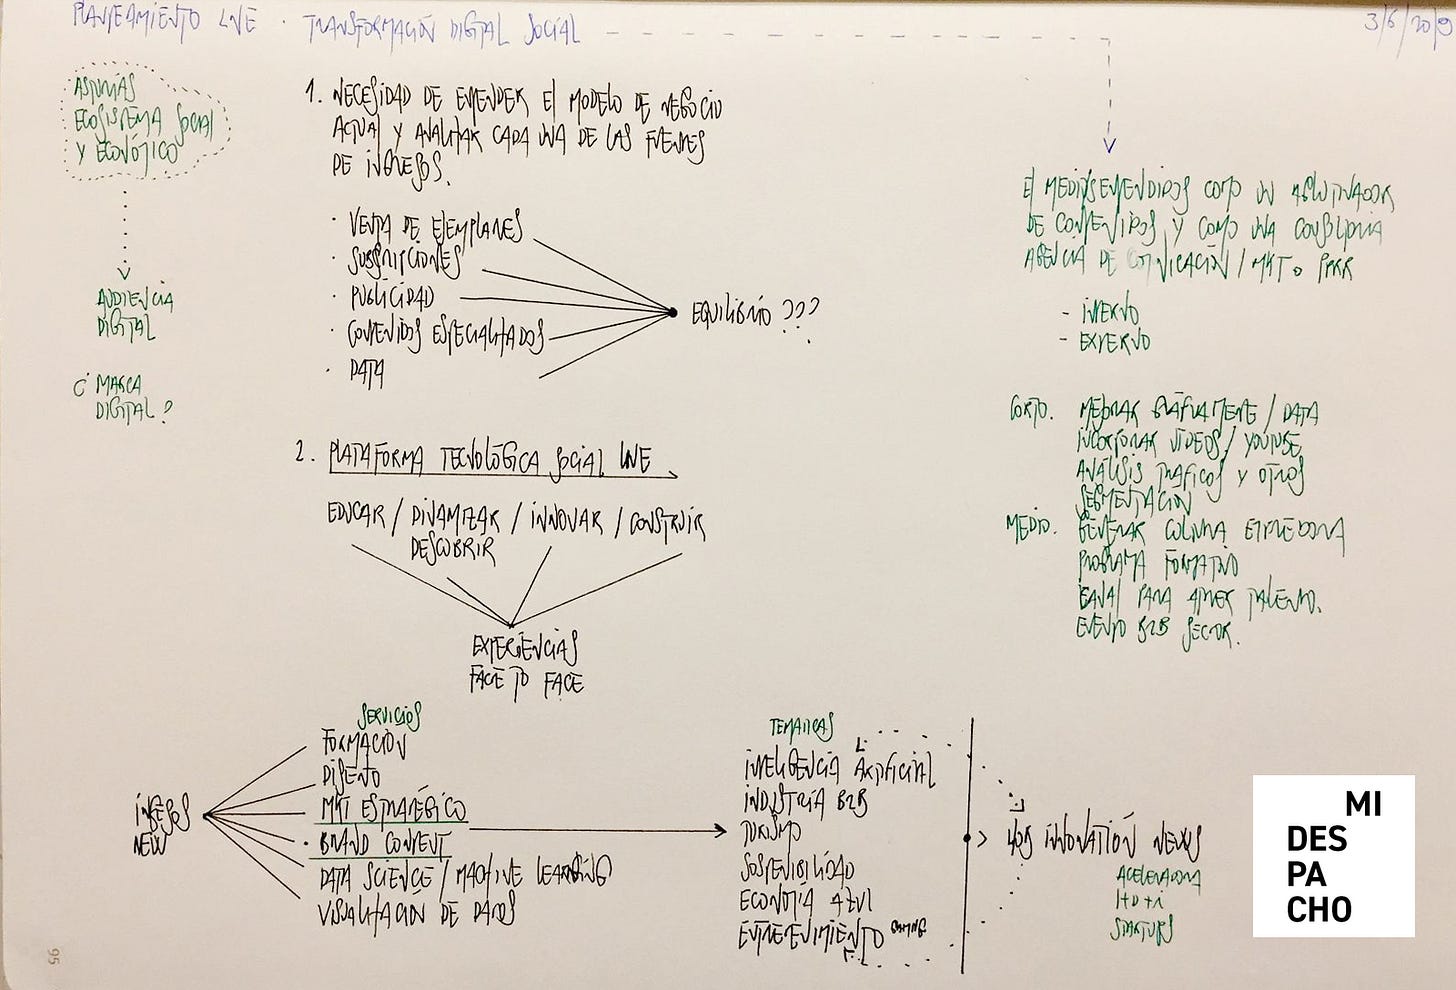 PLANTEAMIENTO LNE · TRANSFORMACIÓN DIGITAL SOCIAL
3/6/2019
ASTURIAS
ECOSISTEMA SOCIAL
Y ECONÓMICO
AUDIENCIA
DIGITAL
¿ MARCA
DIGITAL ?
1. NECESIDAD DE ENTENDER El MODELO DE NEGOCIO
ACTUAL Y ANALIZAR CADA UNA DE LAS FUENTES
DE INGRESOS.
· VENTA DE EJEMPLARES
· SUSCRIPCIONES
· PUBLICIDAD
· CONTENIDOS ESPECIALIZADOS
· DATA
EQUILIBRIO ???
2. PLATAFORMA TECNOLÓGICA SOCIAL LNE
EDUCAR / DINAMIZAR / INNOVAR / CONSTRUIR
DESCUBRIR
EXPERIENCIAS
FACE TO FACE
El MEDIO ENTENDIDOS COMO UN AGLUTINADOR
DE CONTENIDOS Y COMO UNA
AGENCIA DE COMUNICACIÓN / MKT o RRPP
- INTERNO
- EXTERNO
CORTO. MEJORAR GRÁFICAMENTE / DATA
INCORPORAR VIDEOS / YOUTUBE
ANÁLISIS TRÁFICOS Y OTROS
SEGMENTACIÓN
MEDIO. GENERAR CULTURA EMPREDORA
PROGRAMA FORMATIVO
CANAL PARA ATRAER TALENTO.
EVENTO B2B SECTOR.
INGRESOS
NEW
SERVICIOS
FORMACIÓN
DISEÑO
MKT ESTRATÉGICO
· BRAND CONTENT
DATA SCIENCE / MACHINE LEARNING
VISUALIZACION DE DATOS
TEMATICAS
INTELIGENCIA ARTIFICIAL
INDUSTRIA B2B
TURISMO
SOSTENIBILIDAD
ECONOMÍA AZUL
EMPRENDIMIENTO GAMING
HUB INNOVATION NEXUS
ACELERADORA
I+D+i
STARTUPS
95
MI
DES
PA
CHO